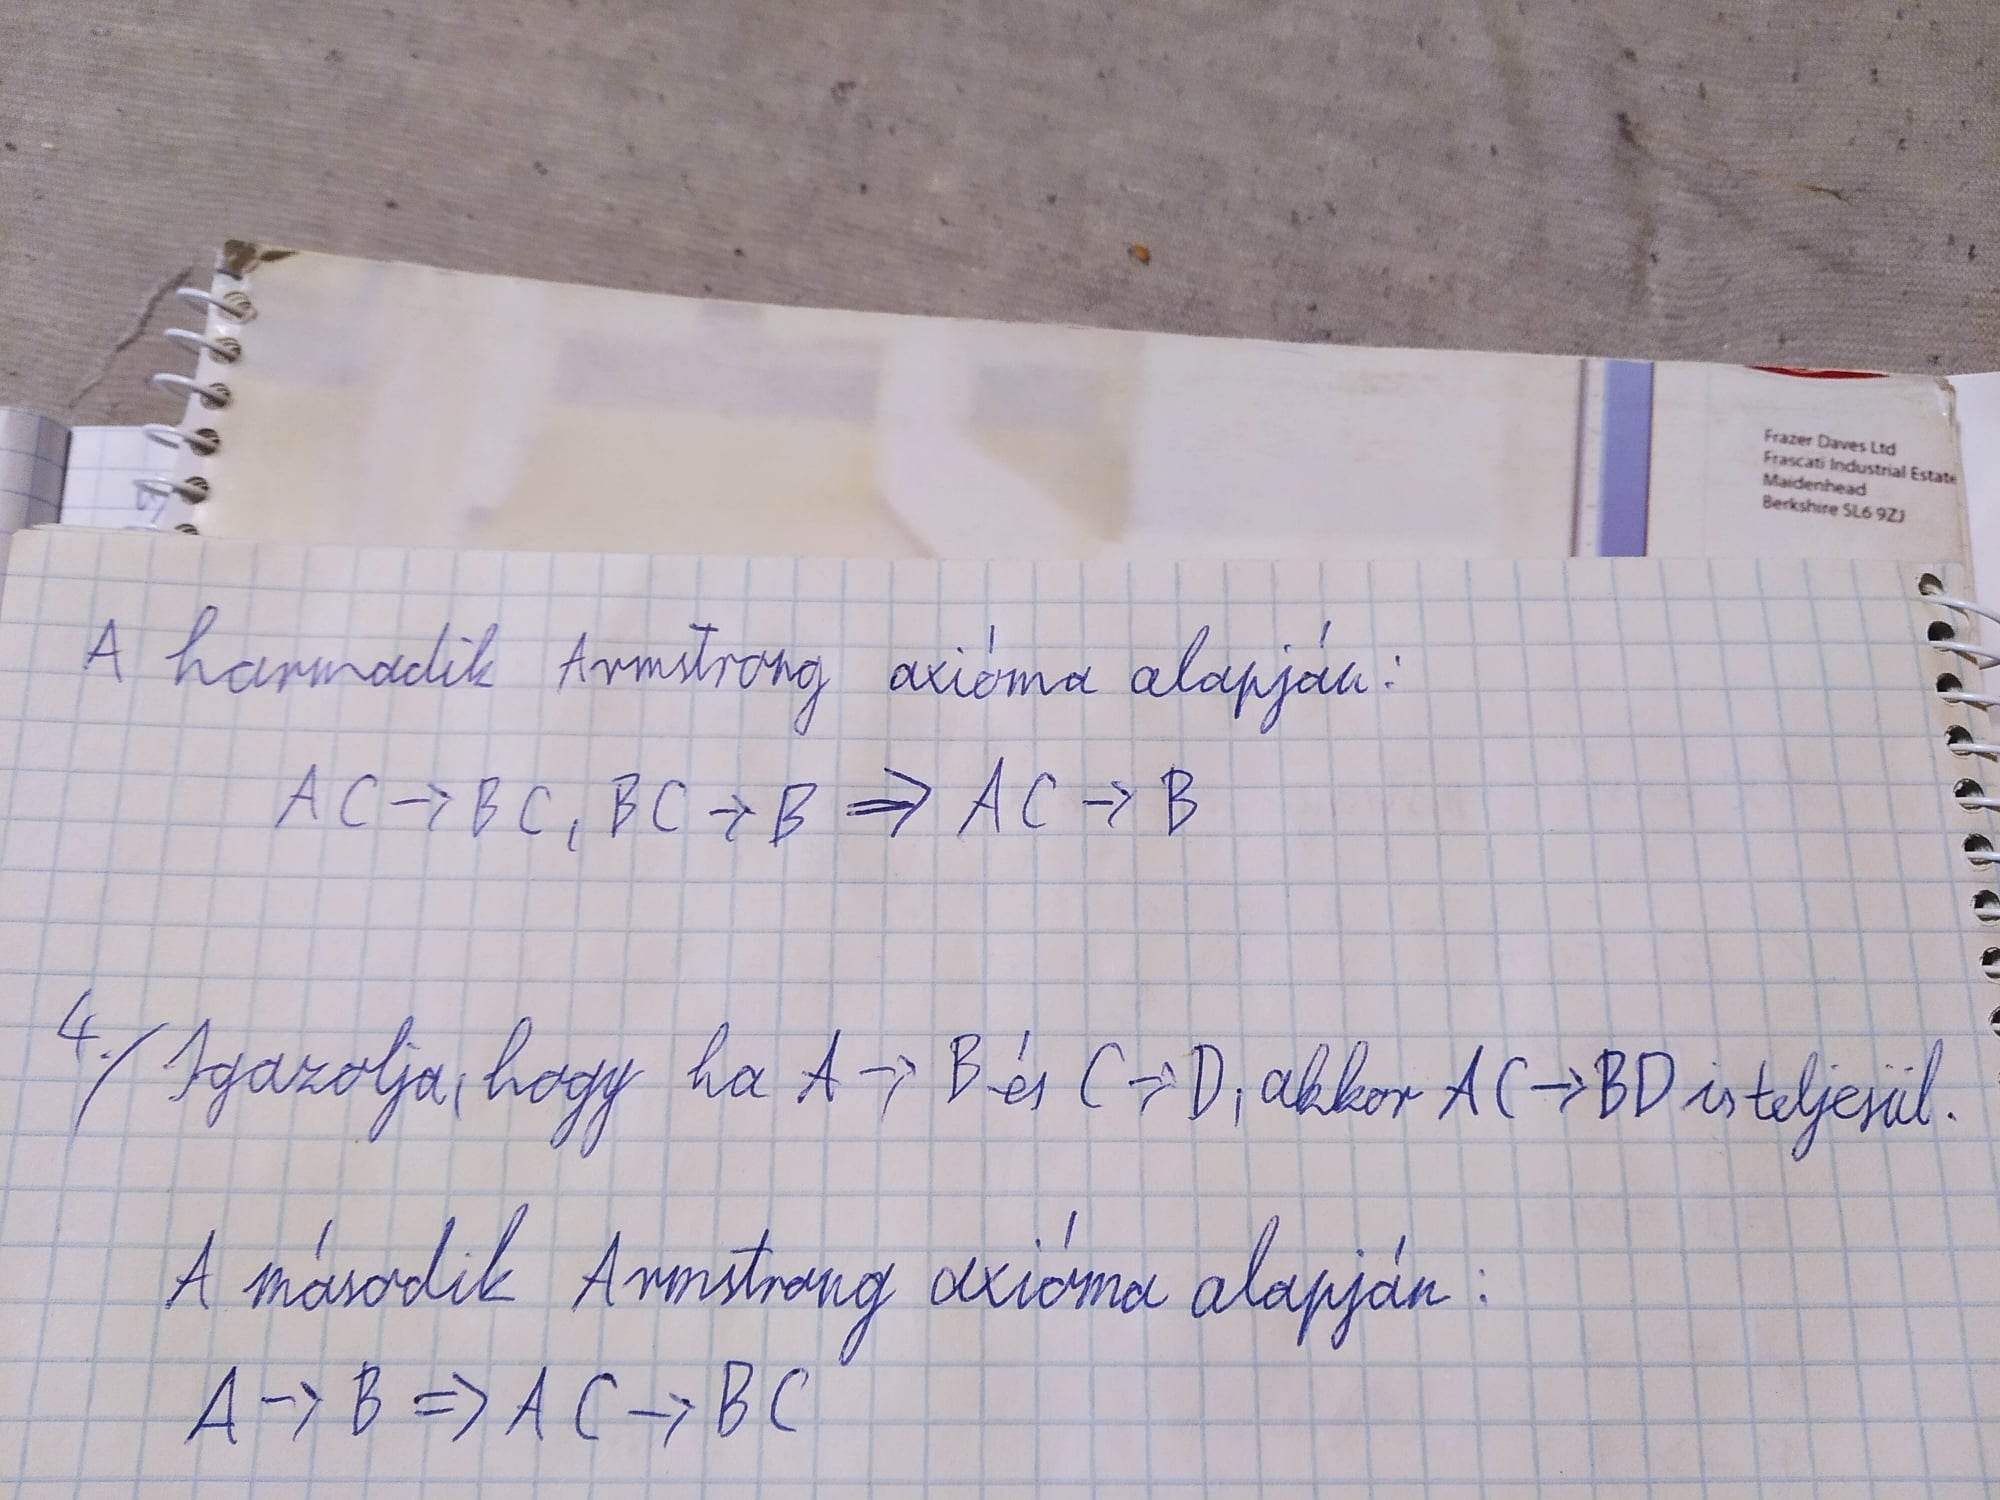 Frazer Daves Ltd
Frascati Industrial Estate
Maidenhead
Berkshire SL6 9ZJ
A harmadik Armstrong axióma alapján:
AC → BC, BC → B ⇒ AC → B
4./ Igazolja, hogy ha A → B és C → D, akkor AC → BD is teljesül.
A második Armstrong axióma alapján:
A → B ⇒ AC → BC